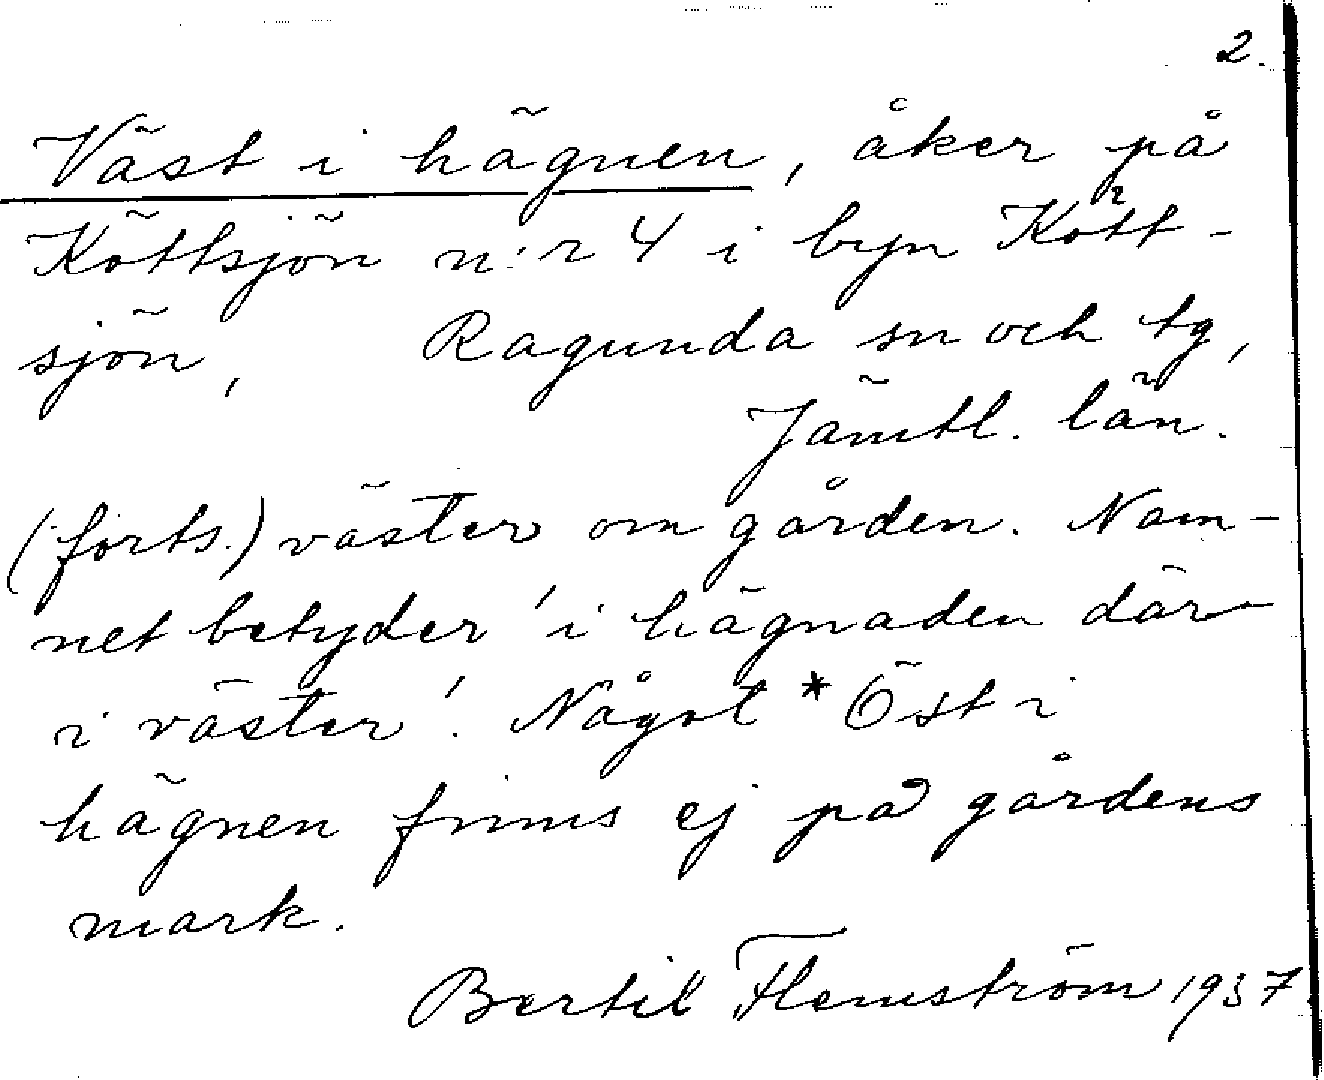 2.
Väst i hägnen, åker på
Köttsjön n:r 4 i byn Kött-
sjön, Ragunda sn och tg,
Jämtl. län.
(forts.) väster om gården. Nam-
net betyder 'i hägnaden där
i väster'. Något *Öst i
hägnen finns ej på gårdens
mark.
Bertil Flemström 1937